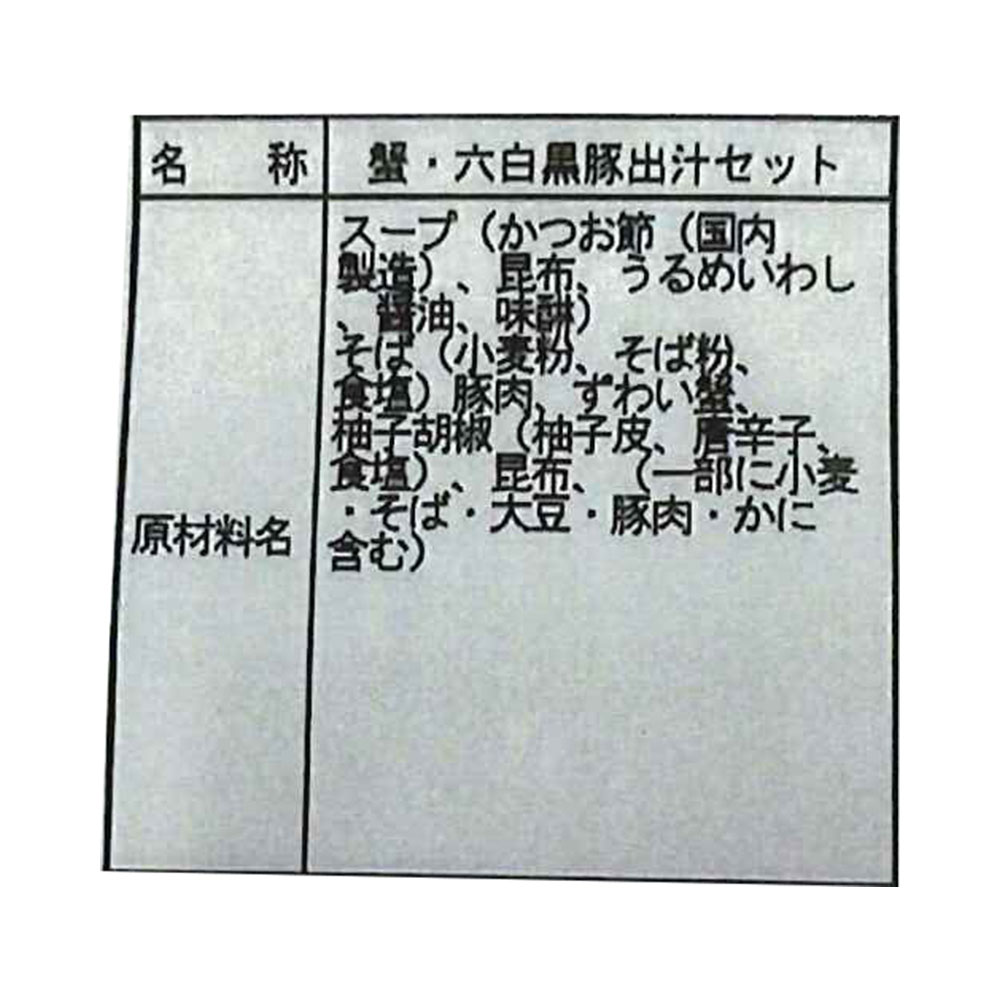 名　称　蟹・六白黒豚出汁セット
原材料名
スープ（かつお節（国内
製造）、昆布、うるめいわし
、醤油、味醂）
そば（小麦粉、そば粉、
食塩）豚肉、ずわい蟹、
柚子胡椒（柚子皮、唐辛子、
食塩）、昆布、（一部に小麦
・そば・大豆・豚肉・かに
含む）